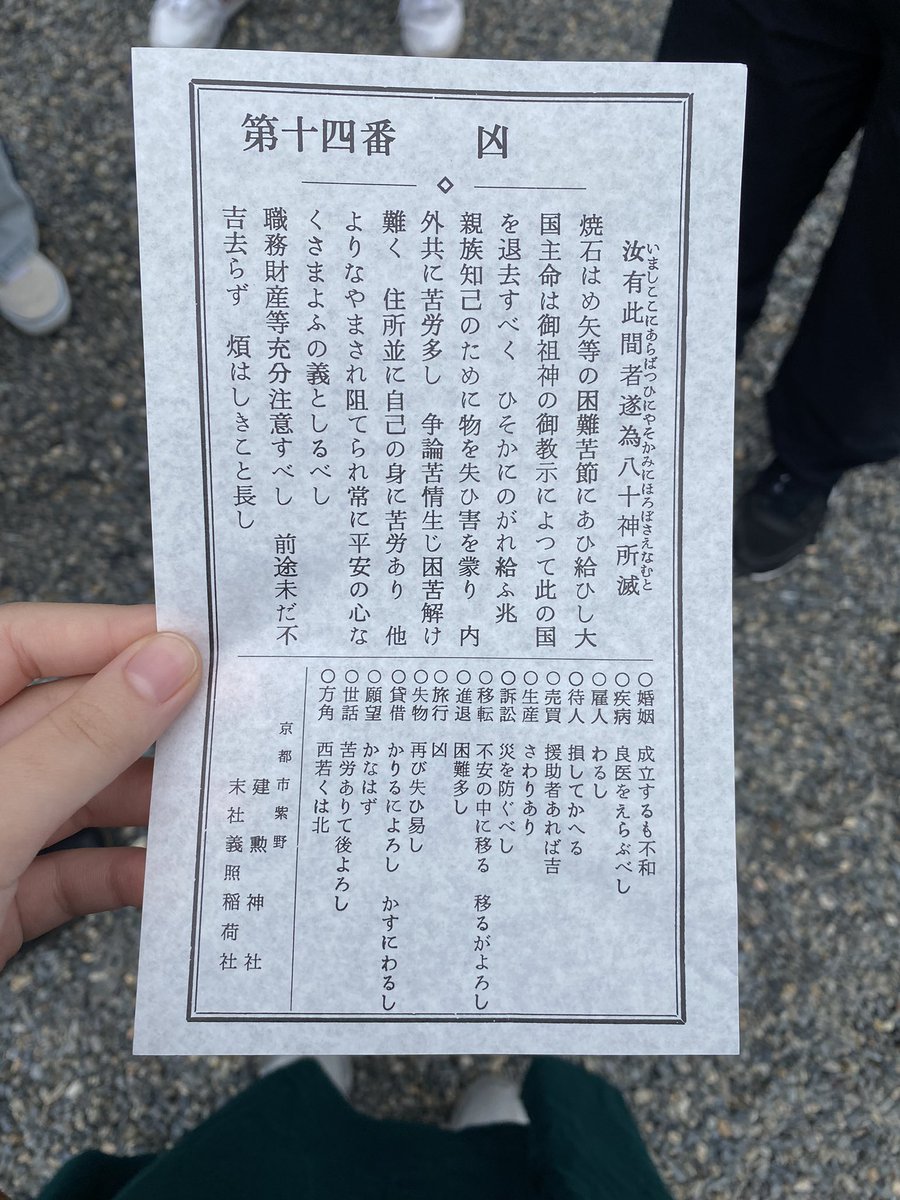 第十四番 凶
いましここにあらばつひにやそかみにほろぼさえなむと
汝有此間者遂為八十神所滅
焼石はめ矢等の困難苦節にあひ給ひし大
国主命は御祖神の御教示によつて此の国
を退去すべく ひそかにのがれ給ふ兆
親族知己のために物を失ひ害を蒙り 内
外共に苦労多し 争論苦情生じ困苦解け
難く 住所並に自己の身に苦労あり 他
よりなやまされ阻てられ常に平安の心な
くさまよふの義としるべし
職務財産等充分注意すべし 前途未だ不
吉去らず 煩はしきこと長し
○婚姻 成立するも不和
○疾病 良医をえらぶべし
○雇人 わるし
○待人 損してかへる
○売買 援助者あれば吉
○生産 さわりあり
○訴訟 災を防ぐべし
○移転 不安の中に移る 移るがよろし
○進退 困難多し
○旅行 凶
○失物 再び失ひ易し
○貸借 かりるによろし かすにわるし
○願望 かなはず
○世話 苦労ありて後よろし
○方角 西若くは北
京都市紫野
建勲神社
末社義照稲荷社